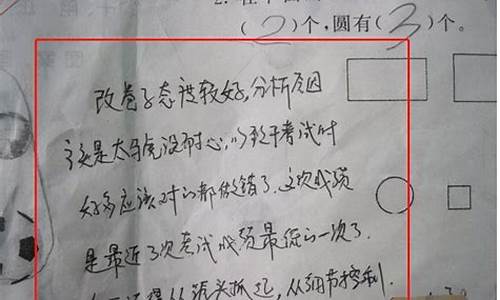 (2)个,圆有(3)个。
改卷子态度较好,分析原因
主要是太马虎没耐心,以致于考试时
好多应该对的都做错了.这次成绩
是最近几次考试成绩最低的一次了.
从头抓起,从细节控制.